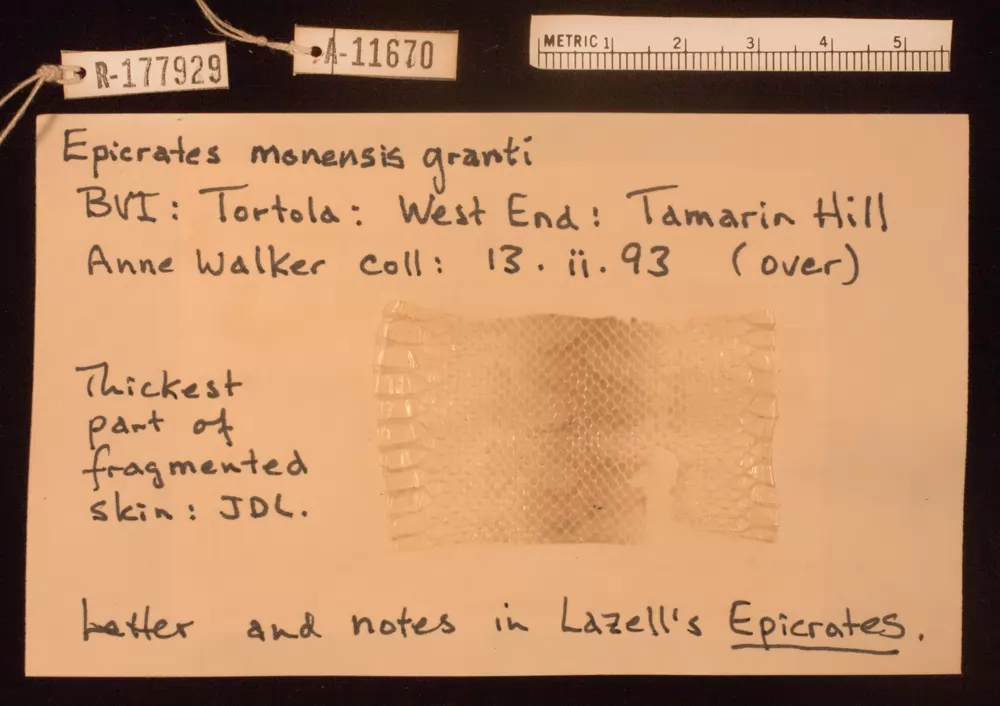 R-177929
A-11670
METRIC 1 2 3 4 5
Epicrates monensis granti
BVI: Tortola: West End: Tamarin Hill
Anne Walker coll: 13.ii.93 (over)
Thickest
part of
fragmented
skin: JDL.
Letter and notes in Lazell's Epicrates.